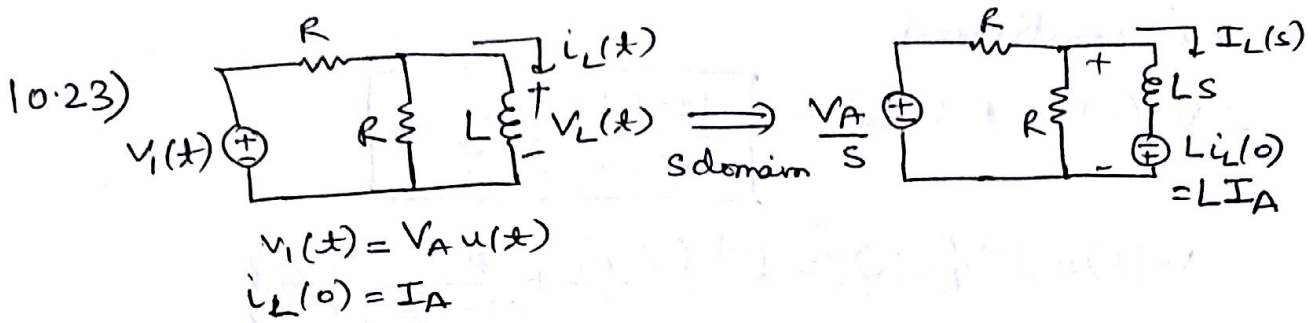 10.23)
v₁(t)
R
R
L
i_L(t)
+
V_L(t)
-
⟹
s domain
V_A/S
R
R
+
-
I_L(s)
LS
L i_L(0)
= L I_A
v₁(t) = V_A u(t)
i_L(0) = I_A